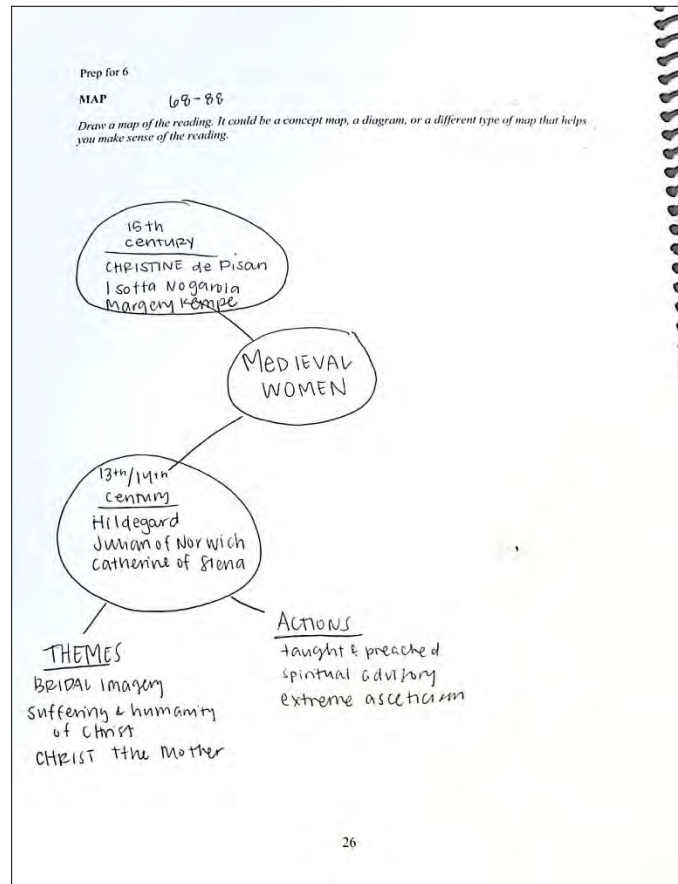 Prep for 6
MAP 68-88
Draw a map of the reading. It could be a concept map, a diagram, or a different type of map that helps
you make sense of the reading.
15th
century
CHRISTINE de Pisan
Isotta Nogarola
Margery Kempe
MEDIEVAL
WOMEN
13th/14th
century
Hildegard
Julian of Norwich
Catherine of Siena
THEMES
BRIDAL Imagery
suffering & humanity
of Christ
CHRIST tthe Mother
ACTIONS
taught & preached
spiritual advisory
extreme asceticism
26